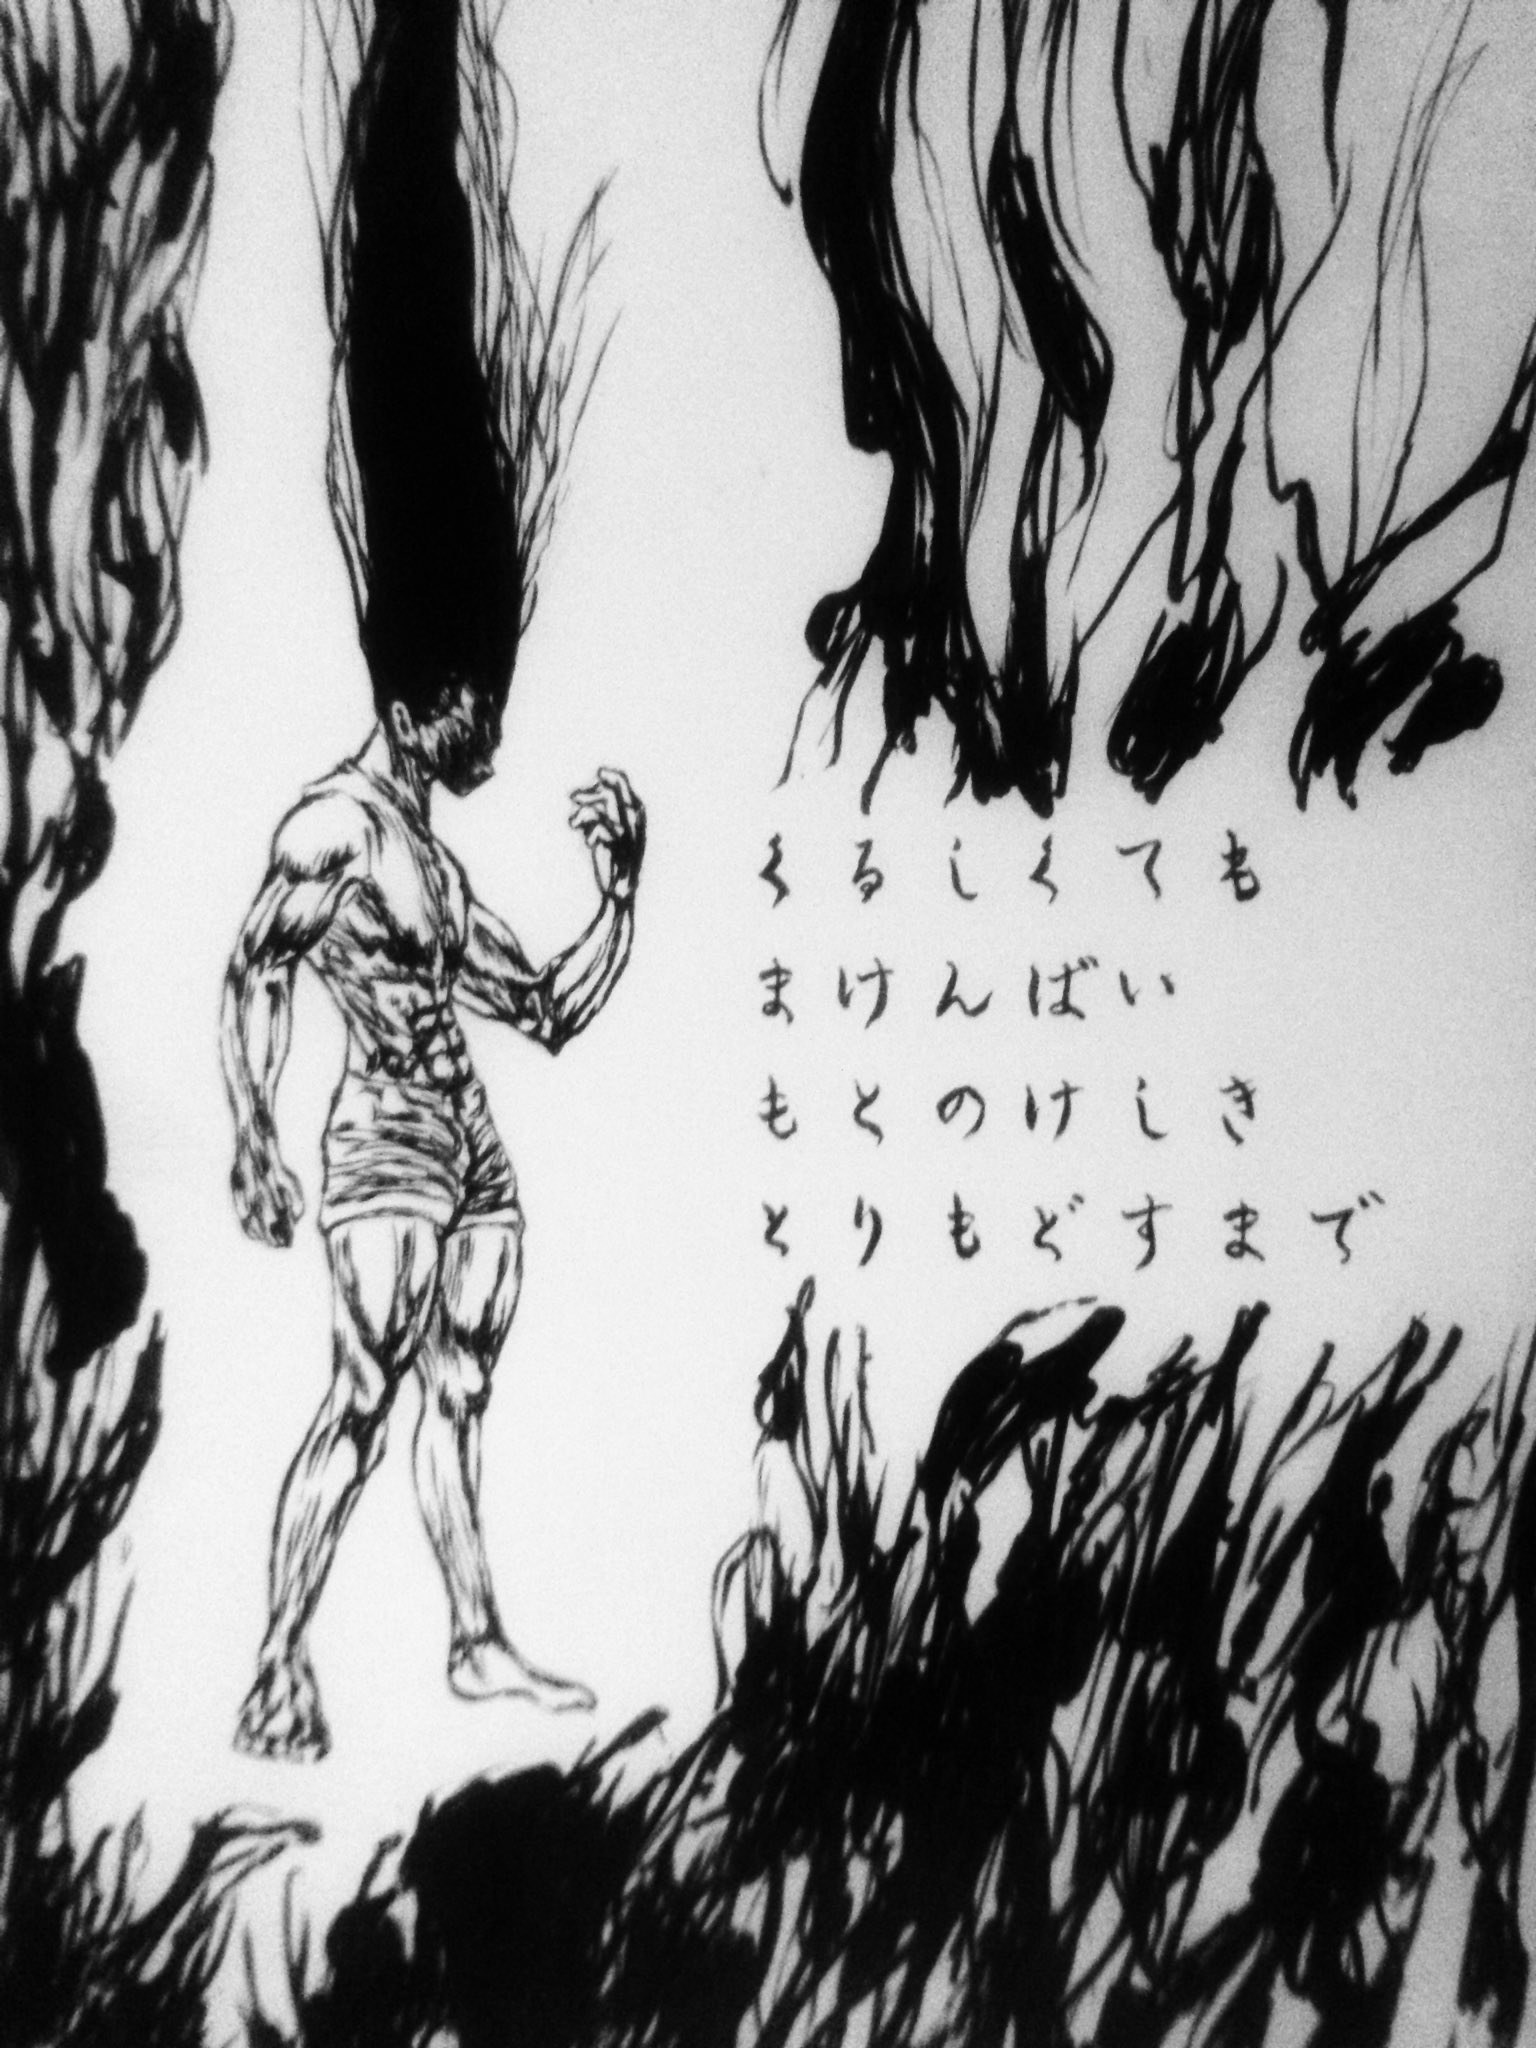 くるしくても
まけんばい
もとのけしき
とりもどすまで